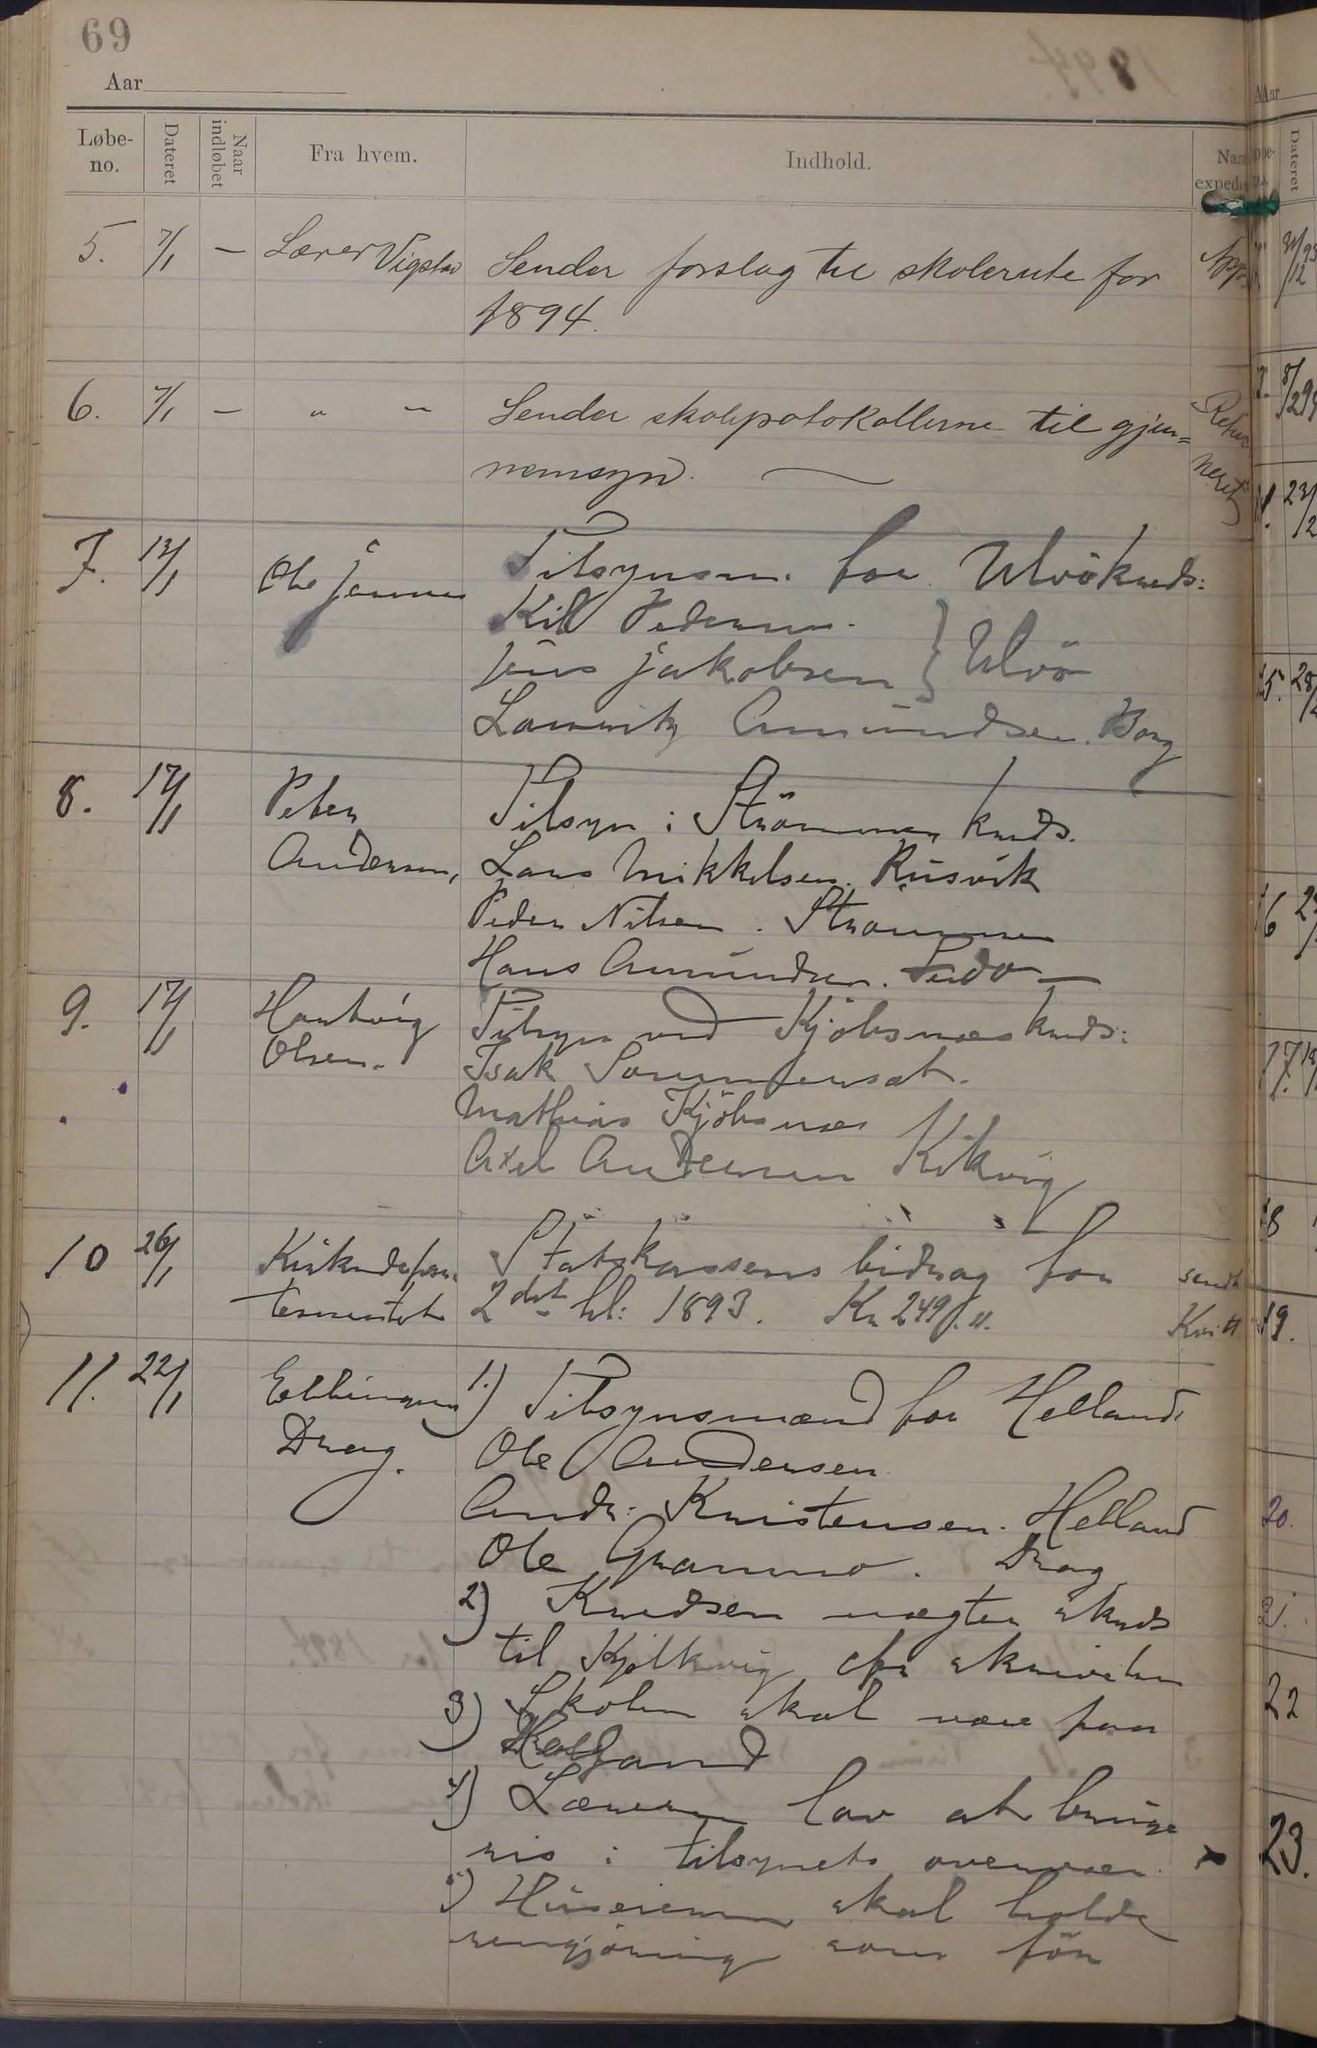 69
Aar
Løbe-no. Dateret Naar indløbet Fra hvem. Indhold. Naar exped
5. 7/1 — Lærer Vigstad Sender forslag til skolerute for
1894.
6. 7/1 — " " Sender skoleprotokollerne til gjen= Retur
nemsyn. neret
7. 13/1 Ole Jensen Tilsynsm. for Ulvökreds:
Kil Pedersen.
Jens Jakobsen } Ulvö
Lauritz Amundsen. Borg
8. 17/1 Peter Tilsyn i Strömmen kreds.
Andersen, Lars Mikkelsen. Rusvik
Peder Nilsen. Strömmen
Hans Amundsen.
9. 17/1 Hartvig Tilsyn ved Kjöbsnæs kreds:
Olsen. Isak Sommerset.
Mathias Kjöbsnæs
Axel Andersen Kilkvig
10 26/1 Kirkedepar= Statskassens bidrag for sendt
tementet 2det hl: 1893. Kr 249. Kvitt
11. 22/1 Ellingsen 1.) Tilsynsmænd for Helland:
Drag. Ole Andersen
Andr. Kristensen. Helland
Ole Grannes. Drag
2) Knudsen nægter skreds
til Kjelkvig cfr skrivelse
3) Skolen skal være paa
Helland
4) Læreren lov at bruge
ris i tilsynets overvær.
5) Huseieren skal holde
rengjöring som för